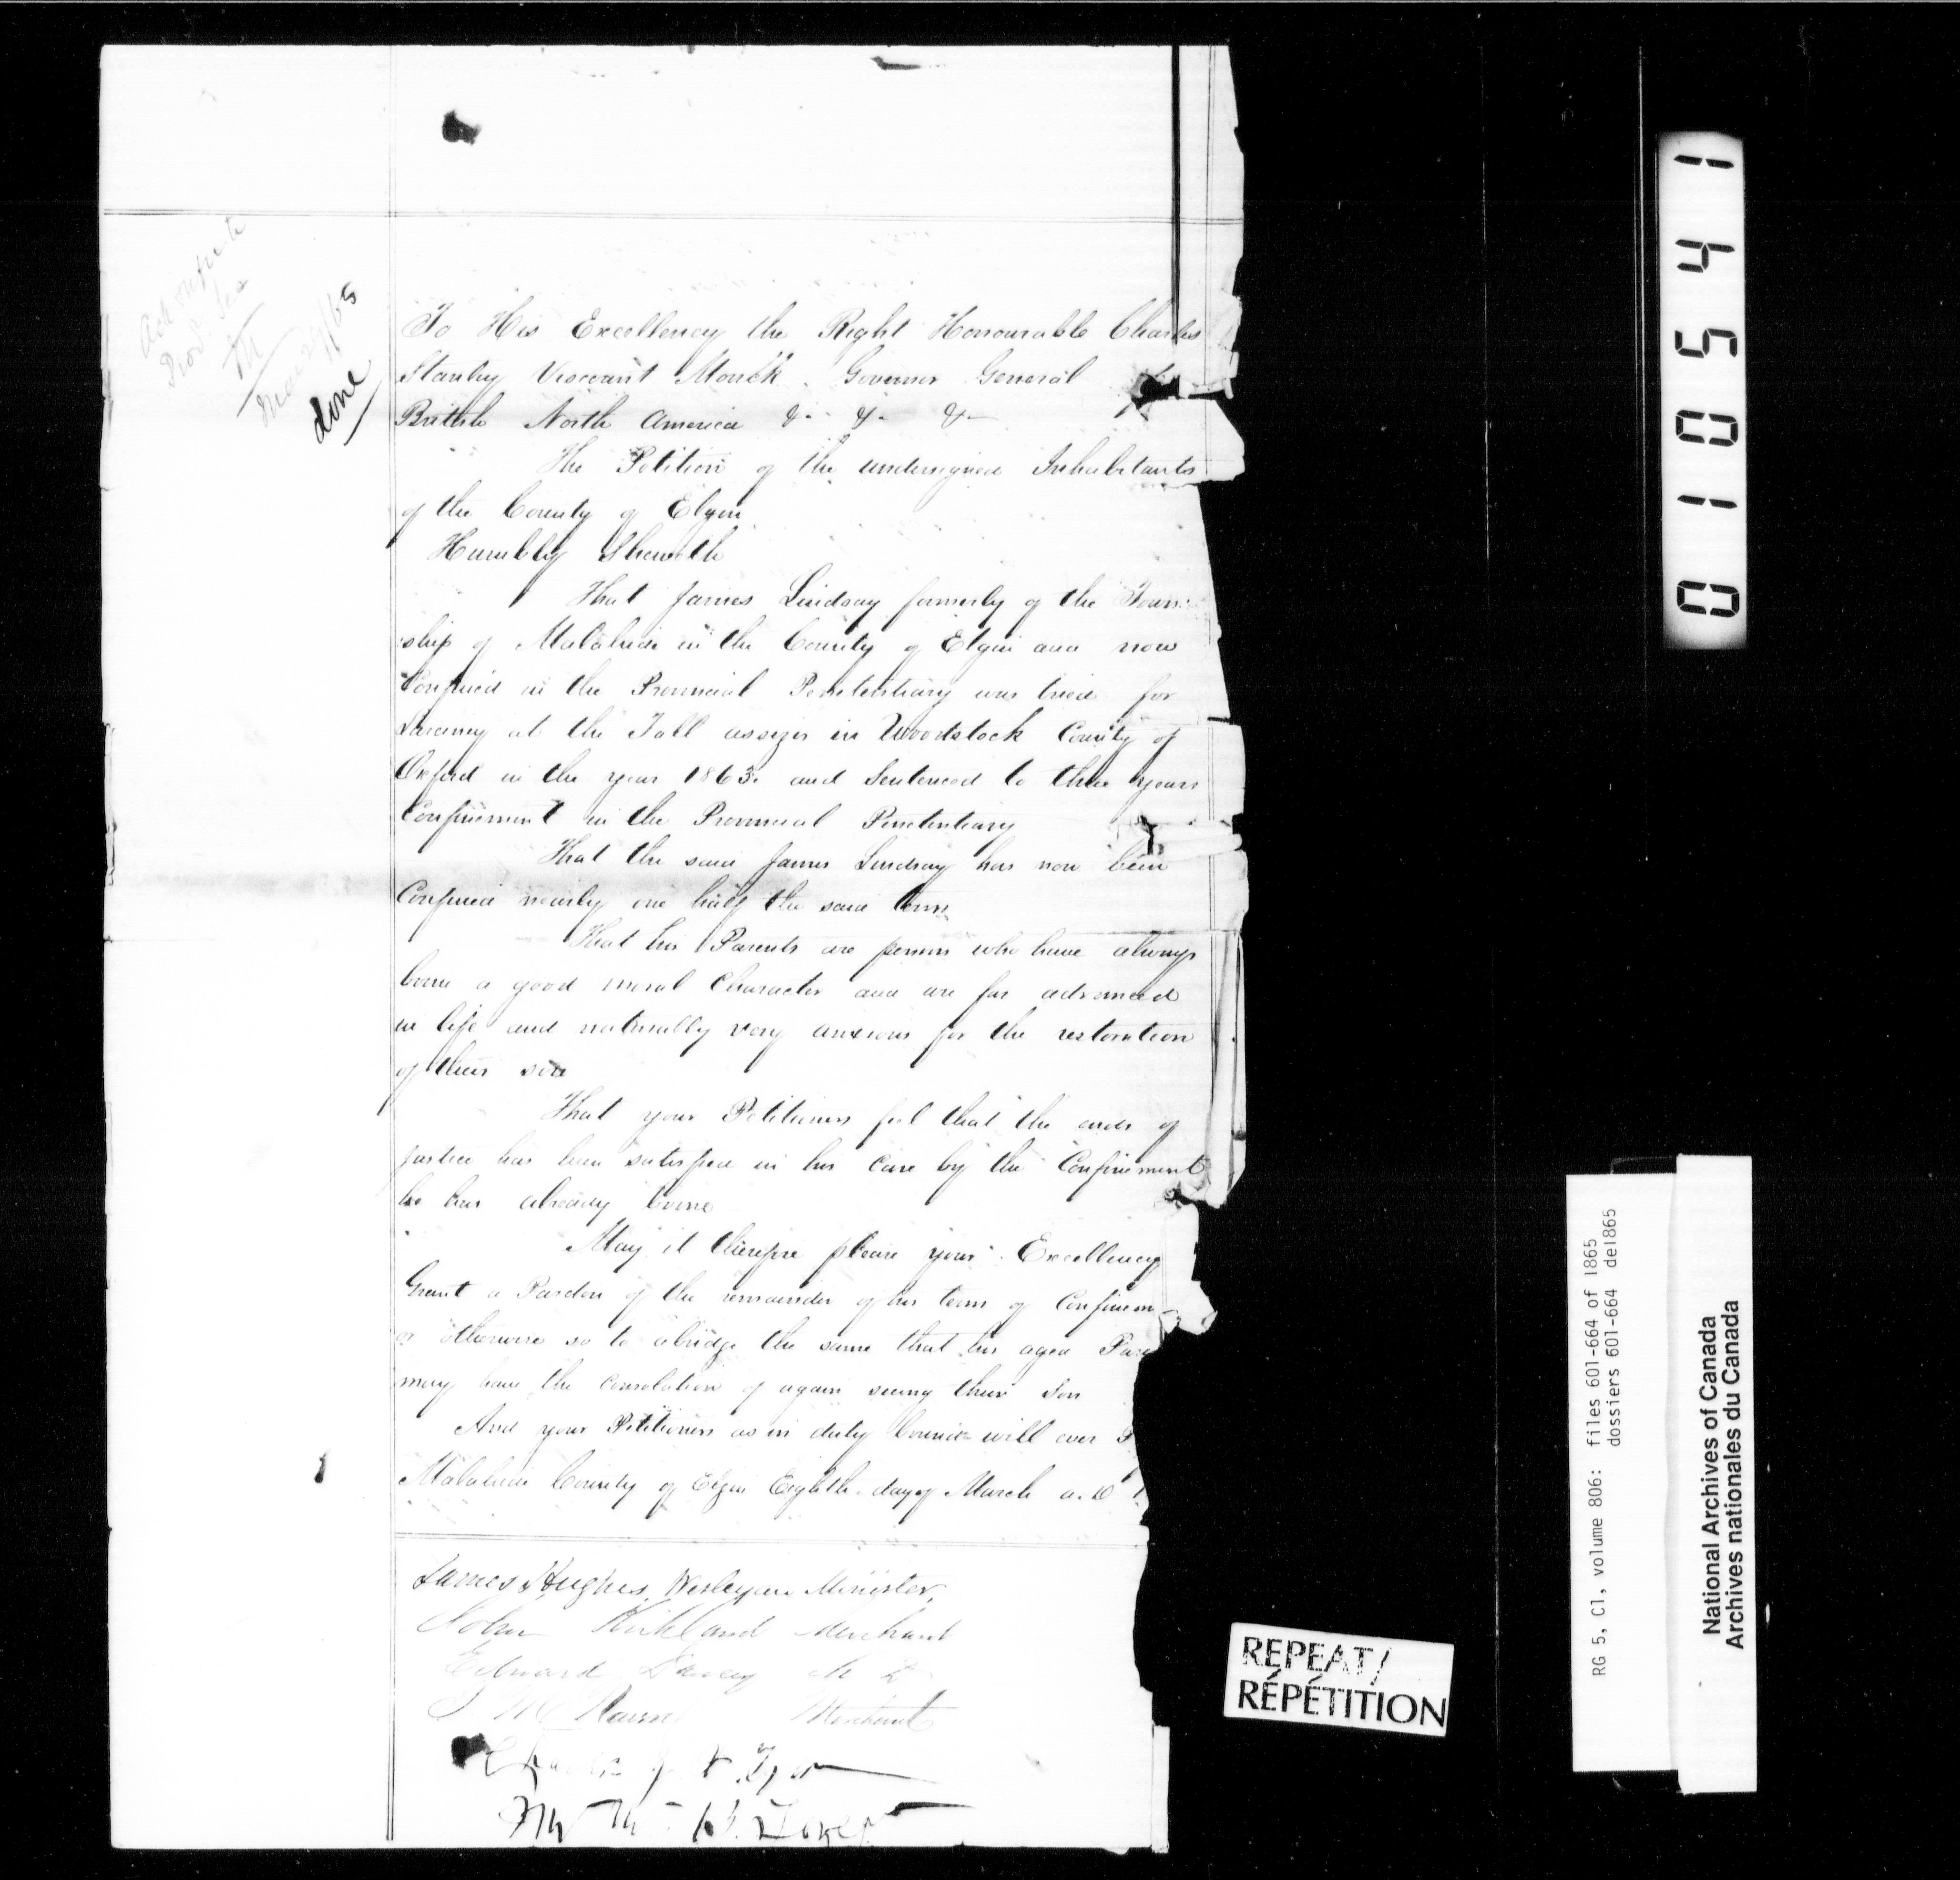 done
To His Excellency the Right Honourable Charles
Stanley Viscount Monck. Governor General
British North America &- &- &-
The Petition of the undersigned Inhabitants
of the County of Elgin
Humbly Sheweth
That James Lindsay formerly of the Town:
:ship of Malahide in the County of Elgin and now
Confined in the Provincial Penetentiary was tried for
Larceny at the Fall assizes in Woodstock County of
Oxford in the year 1863. and Sentenced to three years
Confinement in the Provincial Penetentiary
That the said James Lindsay has now been
Confined nearly one half the said term
That his Parents are persons who have always
borne a good moral Character and are far advanced
in life and naturally very anxious for the restoration
of their son
That your Petitioners feel that the ends of
justice has been satisfied in his case by the Confinement
he has already borne
May it therefore please your Excellency
Grant a Pardon of the remainder of his term of Confinem
or otherwise so to abridge the same that his aged Pare
may have the consolation of again seeing their Son
And your Petitioners as in duty bound will ever P
Malahide County of Elgin Eighth day of March A.D 1
James Hughes, Wesleyan Minister,
John Kirkland Merchant
Edward M D
Merchant
REPEAT/
RÉPÉTITION
0 1 0 5 4 1
RG 5, C1, volume 806: files 601-664 of 1865
dossiers 601-664 de1865
National Archives of Canada
Archives nationales du Canada